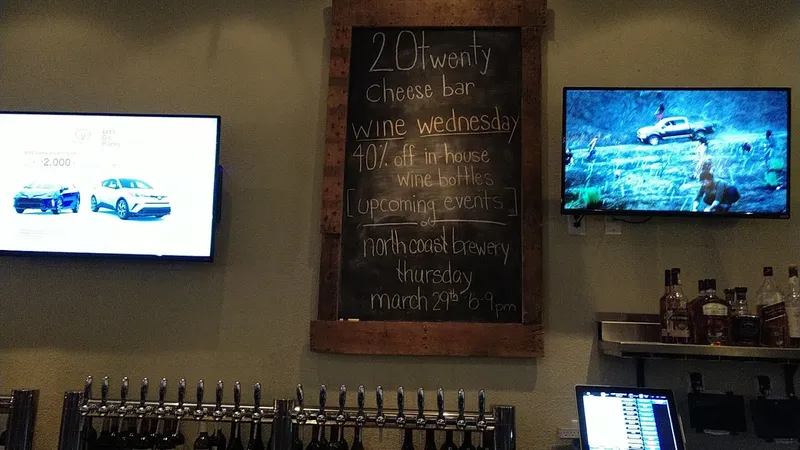 20twenty
cheese bar
wine wednesday
40% off in-house
wine bottles
[upcoming events]
north coast brewery
thursday
march 29th 6-9pm
2,000